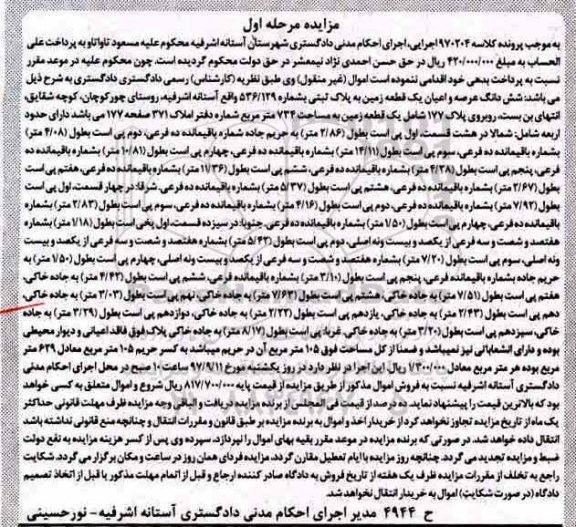 مزایده مرحله اول
به موجب پرونده کلاسه ۹۷۰۲۰۴ اجرایی، اجرای احکام مدنی دادگستری شهرستان آستانه اشرفیه محکوم علیه مسعود تاواتاو به پرداخت علی
الحساب به مبلغ ۴۲۰/۰۰۰/۰۰۰ ریال در حق حسن احمدی نژاد نیمعشر در حق دولت محکوم گردیده است. چون محکوم علیه در موعد مقرر
نسبت به پرداخت بدهی خود اقدامی ننموده است اموال (غیر منقول) وی طبق نظریه (کارشناس) رسمی دادگستری دادگستری به شرح ذیل
می باشد: شش دانگ عرصه و اعیان یک قطعه زمین به پلاک ثبتی بشماره ۵۳۶/۱۲۹ واقع آستانه اشرفیه، روستای چورکوچان، کوچه شقایق،
انتهای بن بست، روبروی پلاک ۱۷۷ شامل یک قطعه زمین به مساحت ۷۳۴ متر مربع شماره دفتر املاک ۳۷۱ صفحه ۱۷۷ می باشد دارای حدود
اربعه شامل: شمالا در هشت قسمت، اول پی است بطول (۲/۸۶ متر) به حریم جاده شماره باقیمانده ده فرعی، دوم پی است بطول (۴/۰۸ متر)
بشماره باقیمانده ده فرعی، سوم پی است بطول (۱۴/۱۱ متر) بشماره باقیمانده ده فرعی، چهارم پی است بطول (۱۰/۸۱ متر) بشماره باقیمانده ده
فرعی، پنجم پی است بطول (۴/۳۸ متر) بشماره باقیمانده ده فرعی، ششم پی است بطول (۱۱/۳۶ متر) بشماره باقیمانده ده فرعی، هفتم پی است
بطول (۲/۶۷ متر) بشماره باقیمانده ده فرعی، هشتم پی است بطول (۵/۳۷ متر) بشماره باقیمانده ده فرعی. شرقا: در چهار قسمت، اول پی است
بطول (۷/۹۲ متر) بشماره باقیمانده ده فرعی، دوم پی است بطول (۴/۱۶ متر) بشماره باقیمانده ده فرعی، سوم پی است بطول (۲/۸۳ متر) بشماره
باقیمانده ده فرعی، چهارم پی است بطول (۱/۵۰ متر) بشماره باقیمانده ده فرعی، جنوبا: در سیزده قسمت، اول یخی است بطول (۱/۱۸ متر) بشماره
هفتصد و شصت و سه فرعی از یکصد و بیست و نه اصلی، دوم پی است بطول (۵/۴۳ متر) بشماره هفتصد و شصت و سه فرعی از یکصد و بیست
ونه اصلی، سوم پی است بطول (۷/۲۰ متر) بشماره هفتصد و شصت و سه فرعی از یکصد و بیست ونه اصلی، چهارم پی است بطول (۱/۵۰ متر) به
حریم جاده بشماره باقیمانده فرعی، پنجم پی است بطول (۳/۱۰ متر) بشماره باقیمانده فرعی، ششم پی است بطول (۴/۴۳ متر) به جاده خاکی،
هفتم پی است بطول (۷/۵۱ متر) به جاده خاکی، هشتم پی است بطول (۷/۶۳ متر) به جاده خاکی، نهم پی است بطول (۳/۰۳ متر) به جاده خاکی،
دهم پی است بطول (۲/۴۳ متر) به جاده خاکی، یازدهم پی است بطول (۲/۲۲ متر) به جاده خاکی، دوازدهم پی است بطول (۳/۲۹ متر) به جاده
خاکی، سیزدهم پی است بطول (۳/۲۰ متر) به جاده خاکی. غربا: پی است بطول (۸/۱۷ متر) به جاده خاکی پلاک فوق فاقد اعیانی و دیوار محیطی
بوده و دارای انشعاباتی نیز نمیباشد و ضمنا از کل مساحت فوق ۱۰۵ متر مربع آن در حریم میباشد به کسر حریم ۱۰۵ متر مربع معادل ۶۲۹ متر
مربع بوده هر متر مربع معادل ۱/۳۰۰/۰۰۰ ریال این اجرا در نظر دارد در روز یکشنبه مورخ ۹۷/۹/۱۱ ساعت ۱۰ صبح در محل اجرای احکام مدنی
دادگستری آستانه اشرفیه نسبت به فروش اموال مذکور از طریق مزایده از قیمت پایه ۸۱۷/۷۰۰/۰۰۰ ریال شروع و اموال متعلق به کسی خواهد
بود که بالاترین قیمت را پیشنهاد نماید. ده درصد از قیمت فی المجلس از برنده مزایده دریافت و الباقی وجه مزایده ظرف مهلت قانونی حداکثر
یک ماه از تاریخ مزایده تجاوز نخواهد کرد از خریدار اخذ و اموال به برنده مزایده بر طبق قانون و مقررات انتقال و چنانچه منع قانونی نداشته باشد
انتقال داده خواهد شد. در صورتی که برنده مزایده در موعد مقرر بقیه بهای اموال را نپردازد، سپرده وی پس از کسر هزینه مزایده به نفع دولت
ضبط و مزایده تجدید می گردد. چنانچه روز مزایده با ایام تعطیل مقارن گردد. مزایده فردای همان روز در ساعت و مکان برگزار می گردد. شکایت
راجع به تخلف از مقررات مزایده ظرف یک هفته از تاریخ فروش به دادگاه صادر کننده ارجاع و قبل از اتمام مهلت مذکور یا قبل از اتخاذ تصمیم
دادگاه (در صورت شکایت) اموال به خریدار انتقال نخواهد شد.
ح ۴۹۴۴ مدیر اجرای احکام مدنی دادگستری آستانه اشرفیه- نورحسینی